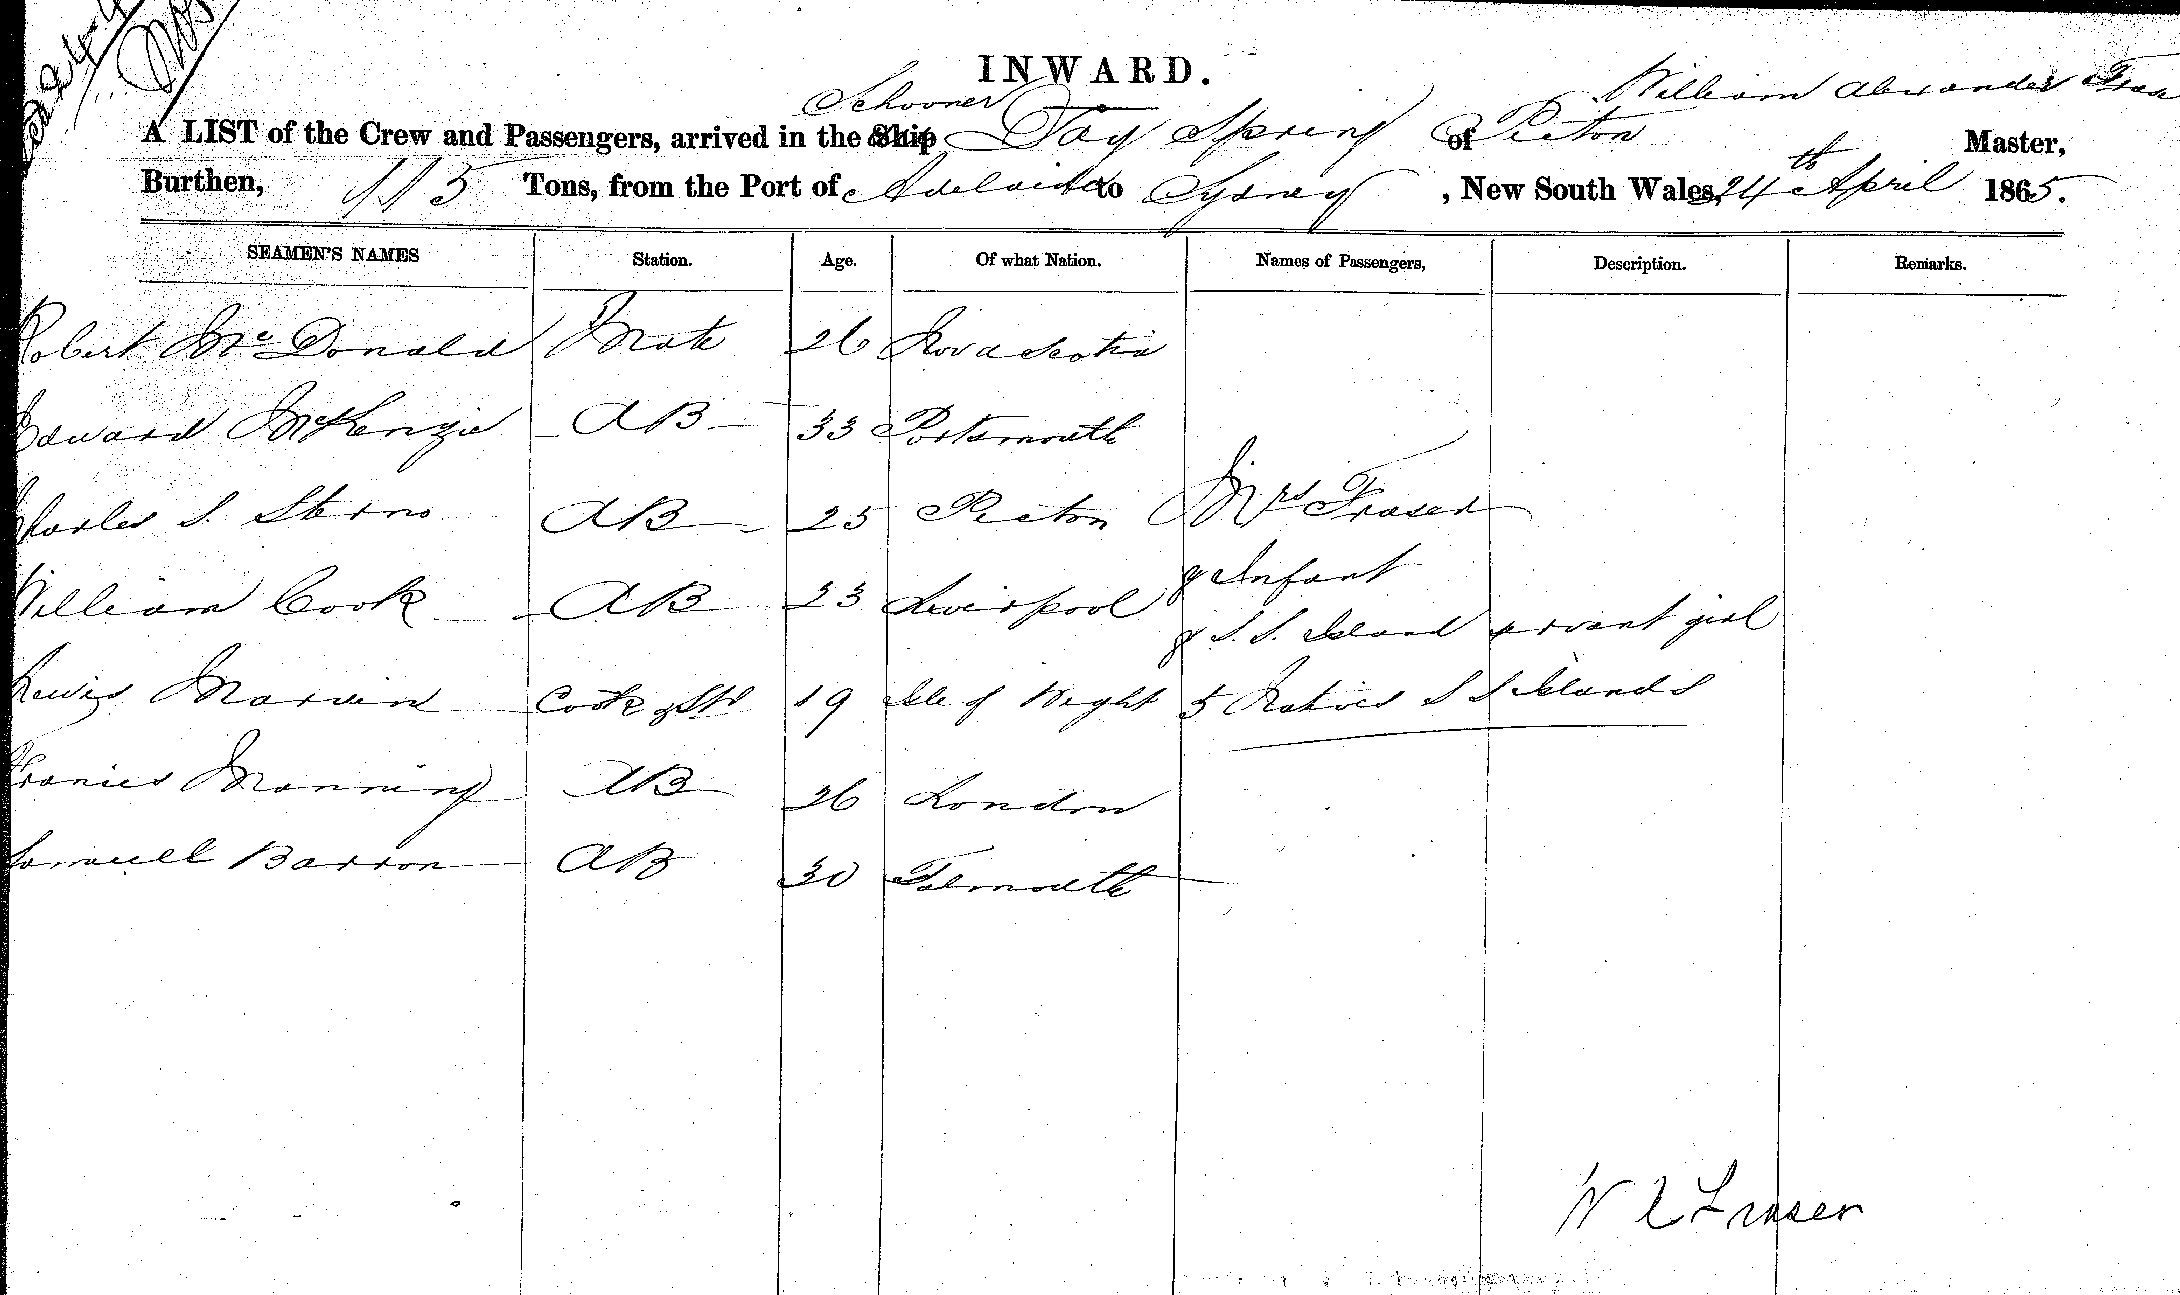 INWARD.
William Alexander Fras
Schooner
A LIST of the Crew and Passengers, arrived in the Ship Day Spring of Picton Master,
Burthen, 115 Tons, from the Port of Adelaide to Sydney, New South Wales, 24th April 1865.
SEAMEN'S NAMES Station. Age. Of what Nation. Names of Passengers, Description. Remarks.
Robert McDonald Mate 26 Nova Scotia
Edward McKenzie AB 33 Portsmouth
Charles S. Sterns AB 25 Picton Mrs Fraser
& Infant
William Cook AB 23 Liverpool
& S. S. Island servant girl
Lewis Marvin Cook & Std 19 Isle of Wight 5 Natives S S Islands
Francies Manning AB 26 London
Samuell Barron AB 30 Falmouth
W A Fraser